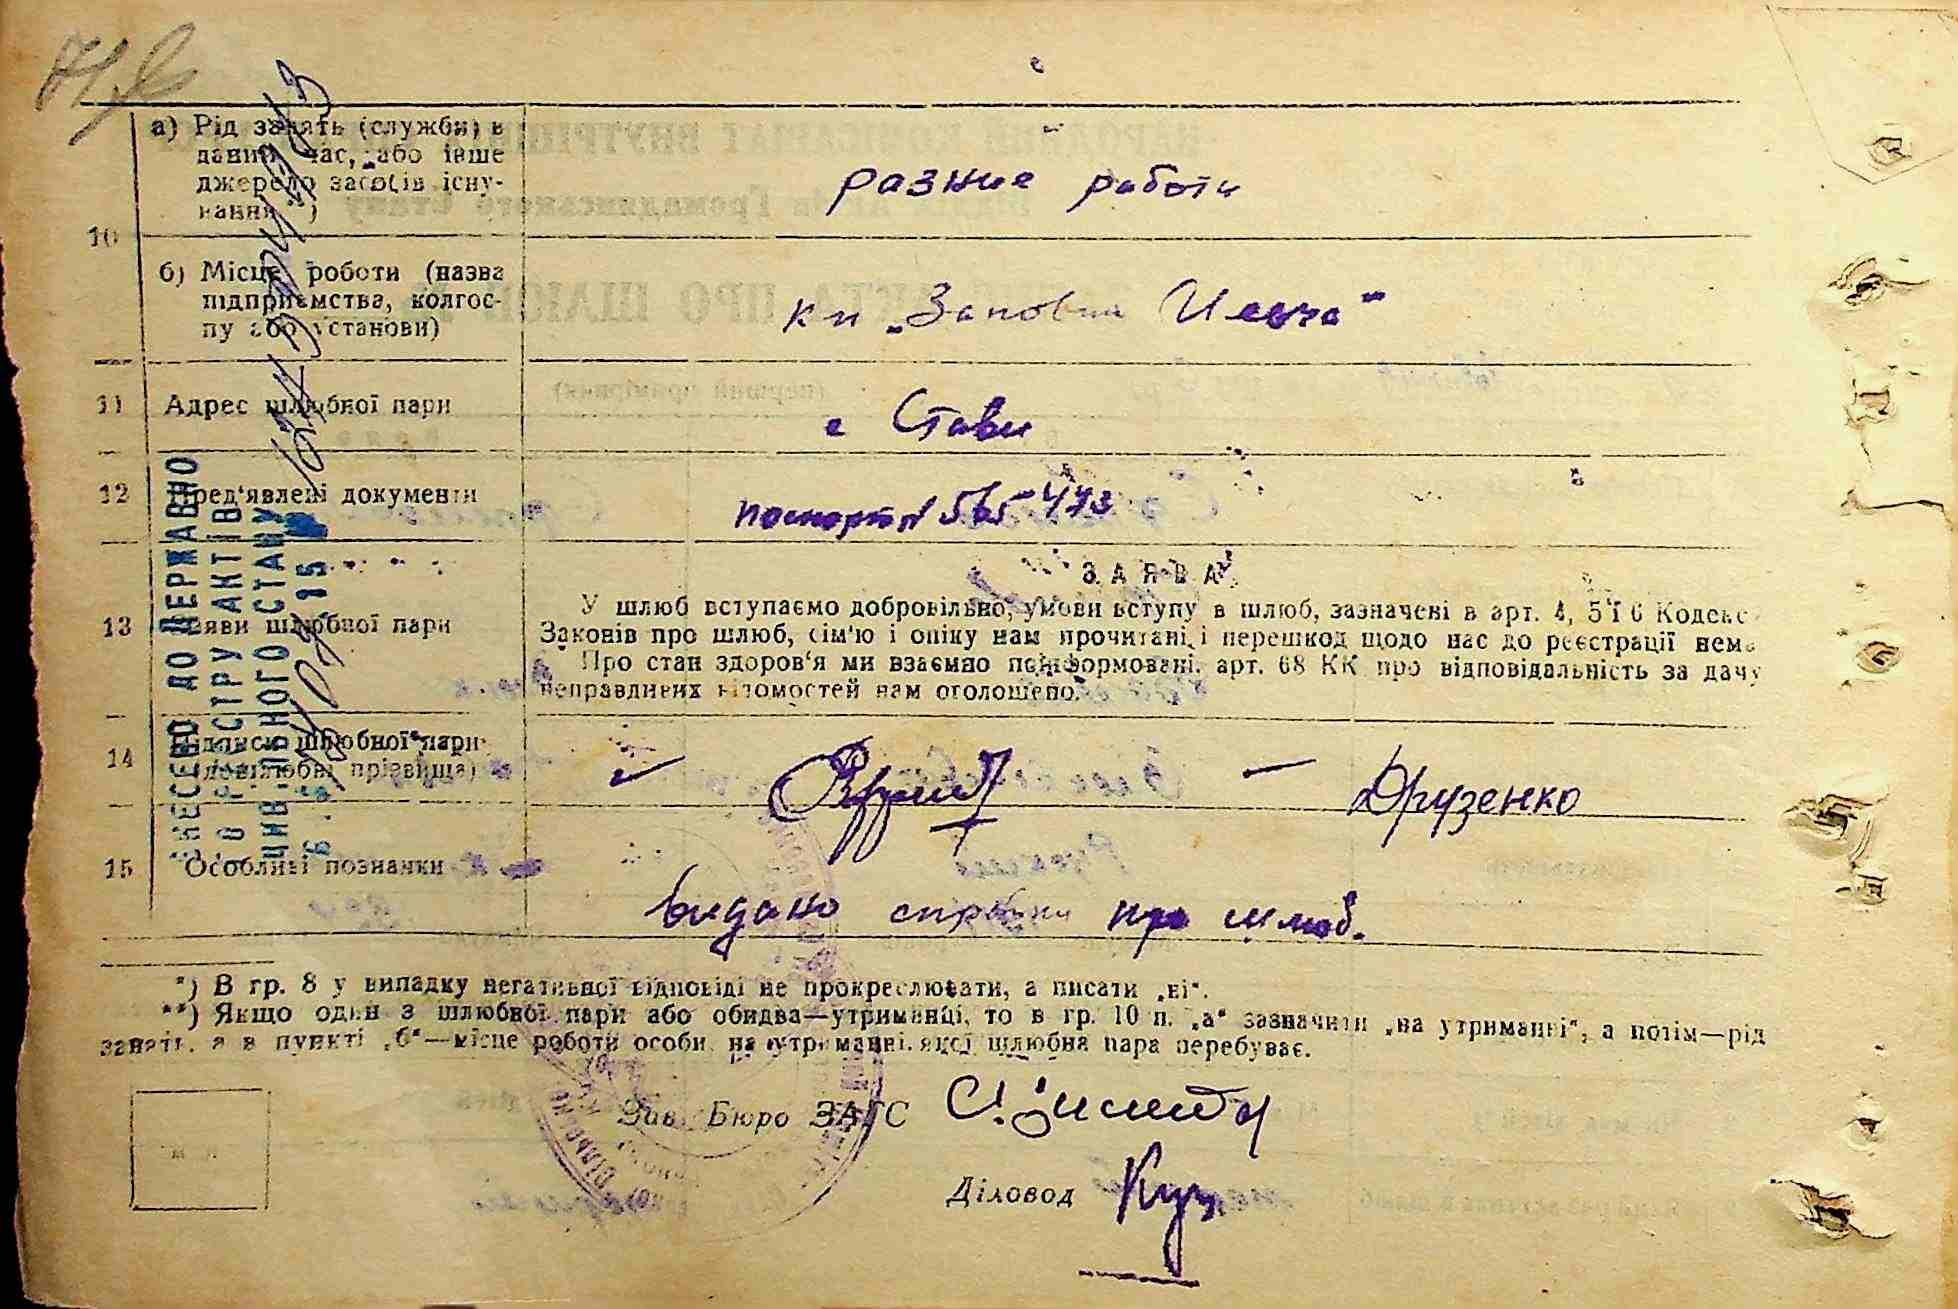 10
а) Рід занять (служби) в
даний час, або інше
джерело засобів існу-
вання **)
разние работи
б) Місце роботи (назва
підприємства, колгос-
пу або установи)
кп „Заповіт Ілліча“
11 Адрес шлюбної пари
с Стави
12 Пред'явлені документи
паспорт №
13 Заяви шлюбної пари
ЗАЯВА
У шлюб вступаємо добровільно, умови вступу в шлюб, зазначені в арт. 4, 5 і 6 Кодекс
Законів про шлюб, сім'ю і опіку нам прочитані і перешкод щодо нас до реєстрації нема
Про стан здоров'я ми взаємно поінформовані, арт. 68 КК про відповідальність за дачу
неправдивих відомостей нам оголошено.
14 Підписи шлюбної пари
(дошлюбні прізвища)
Друзенко
15 Особливі позначки
видано справки про шлюб.
*) В гр. 8 у випадку негативної відповіді не прокреслювати, а писати „ні“.
**) Якщо один з шлюбної пари або обидва—утриманці, то в гр. 10 п. „а“ зазначити „на утриманні“, а потім—рід
занять, а в пункті „б“—місце роботи особи, на утриманні якої шлюбна пара перебуває.
Зав. Бюро ЗАГС
Діловод Куз
М. П.
ВНЕСЕНО ДО ДЕРЖАВНО
ГО РЕЄСТРУ АКТІВ
ЦИВІЛЬНОГО СТАНУ